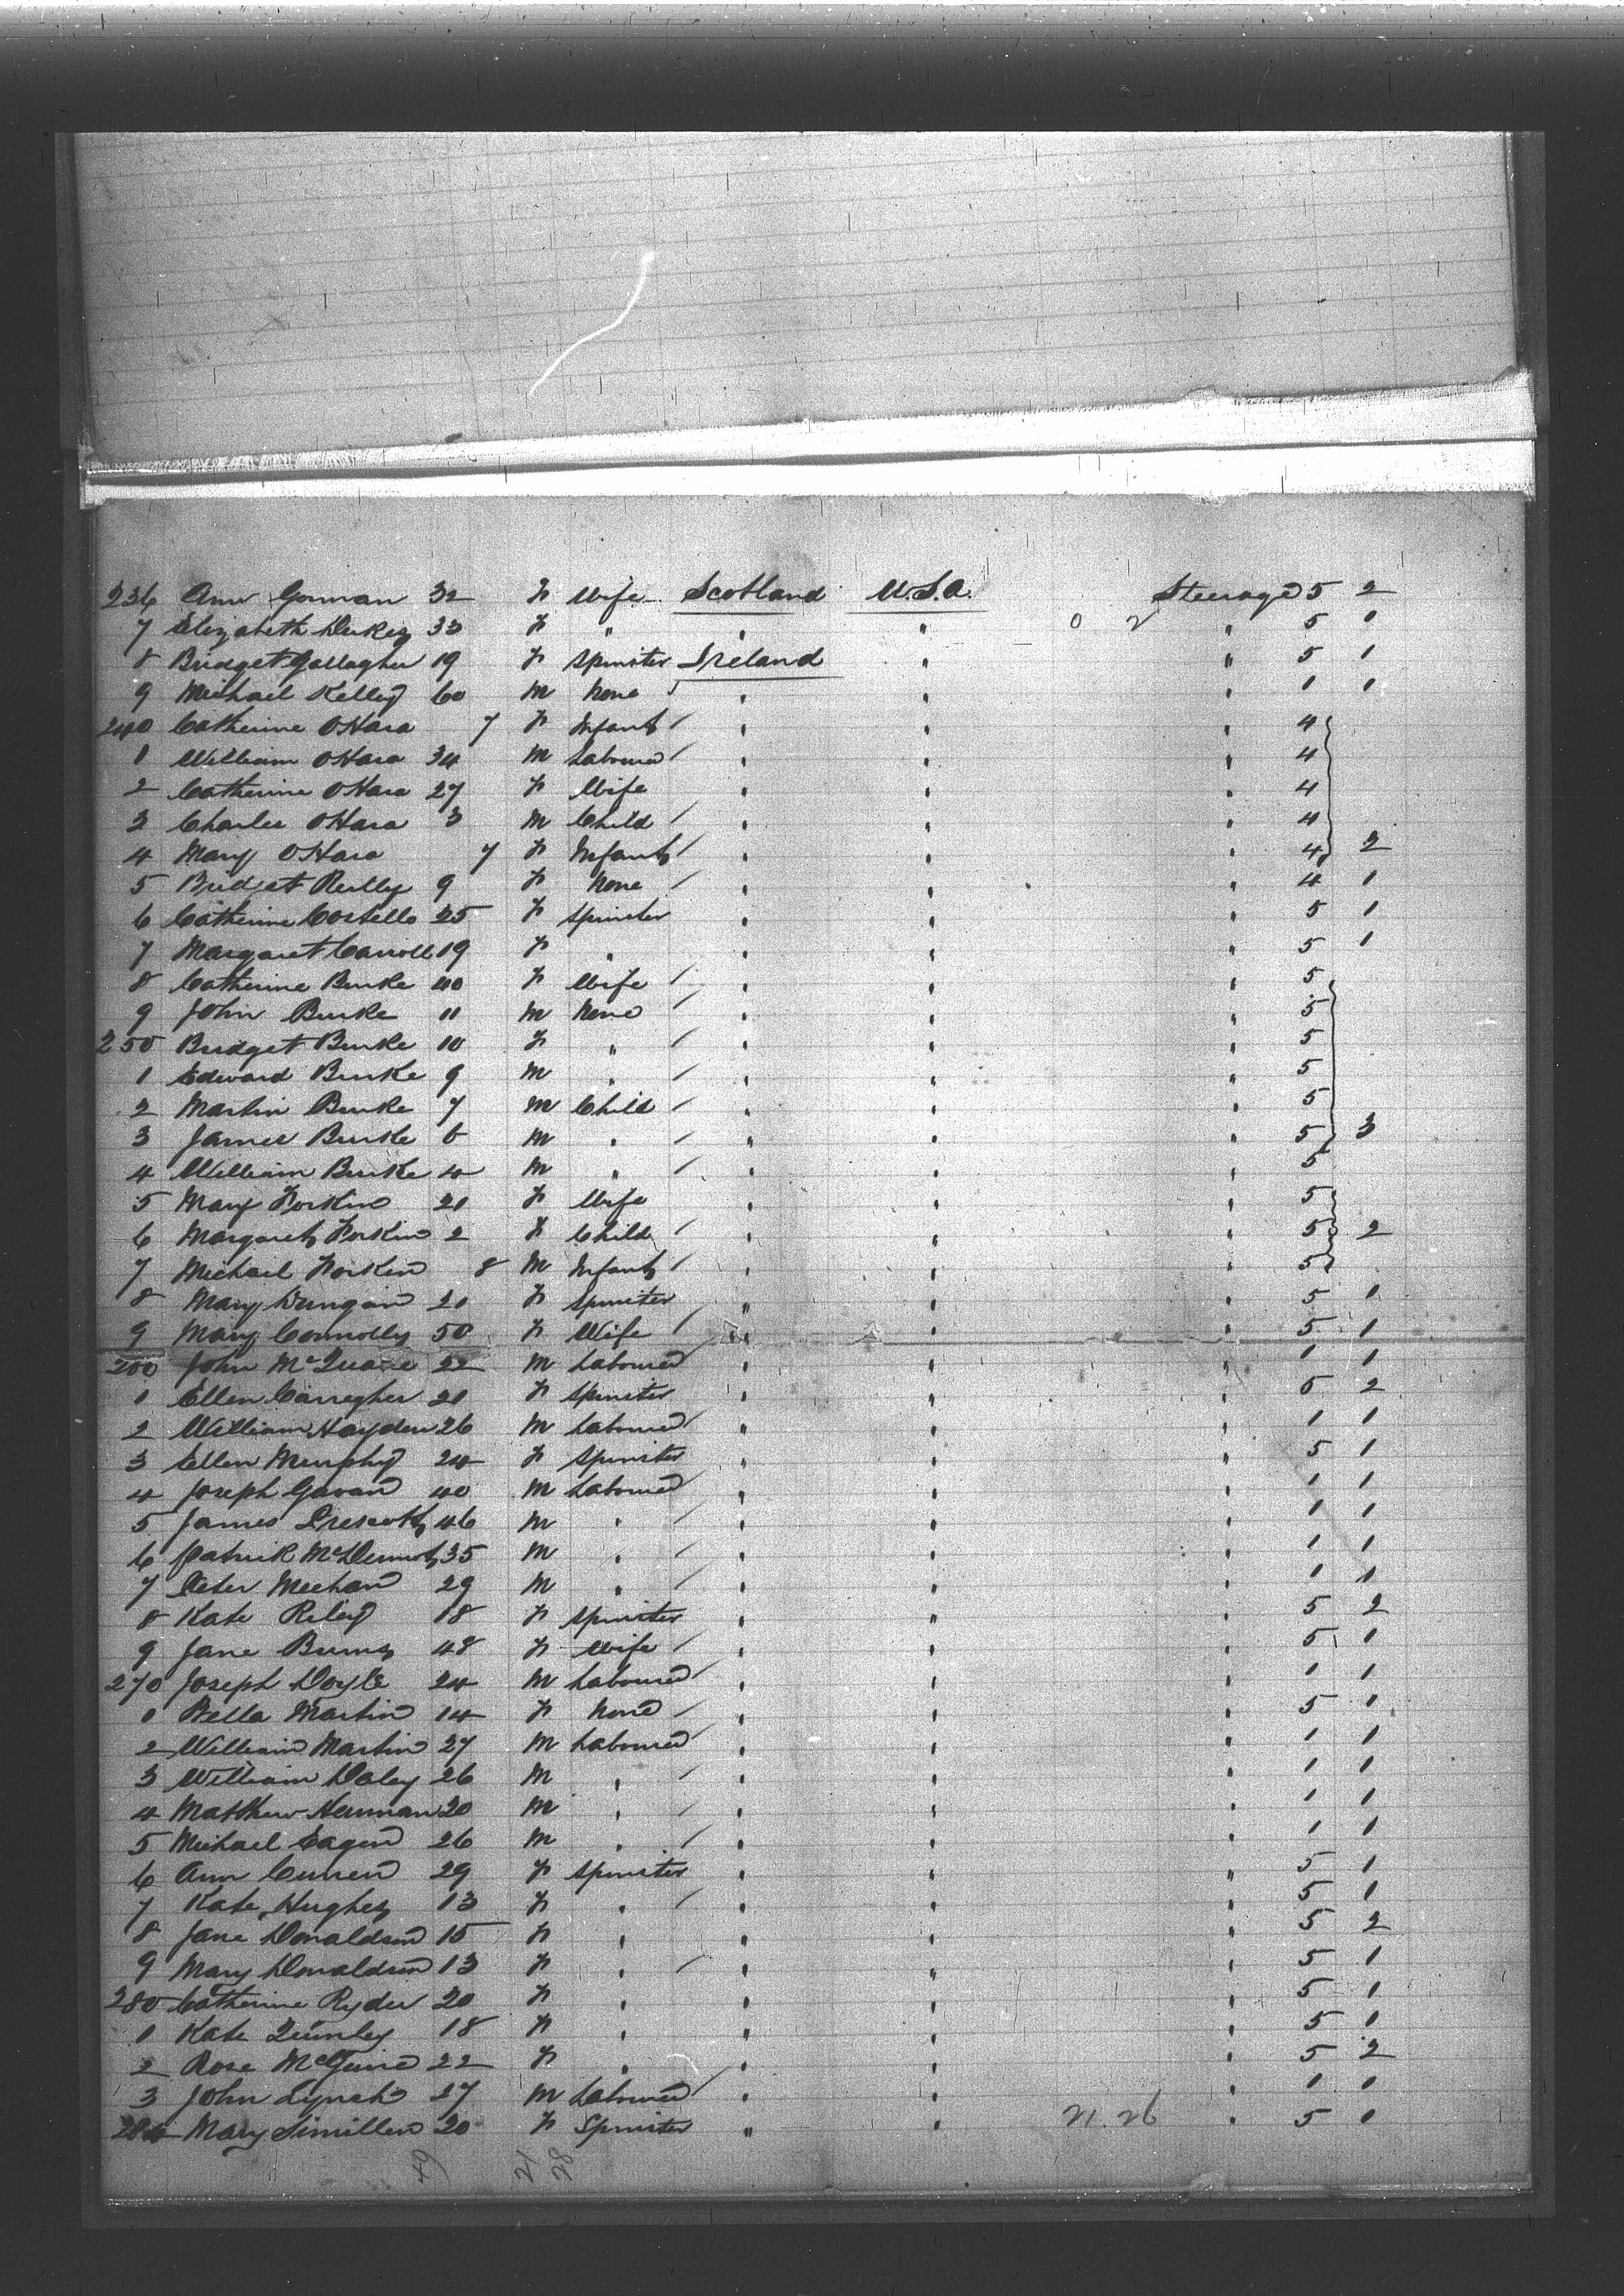 236 Ann Gorman 32 F Wife Scotland U.S.A. Steerage 5 2
7 Elizabeth Dukes 33 F " " " 0 2 " 5 1
8 Bridget Gallagher 19 F Spinster Ireland " " 5 1
9 Michael Kelley 60 M None " " " 1 1
240 Catherine OHara 7 F Infant " " " 4
1 William OHara 34 M Labourer " " " 4
2 Catherine OHara 27 F Wife " " " 4
3 Charles OHara 3 M Child " " " 4
4 Mary OHara 7 F Infant " " " 4 2
5 Bridget Reilly 9 F None " " " 4 1
6 Catherine Costello 25 F Spinster " " " 5 1
7 Margaret Carroll 19 F " " " " 5 1
8 Catherine Burke 40 F Wife " " " 5
9 John Burke 11 M None " " " 5
250 Bridget Burke 10 F " " " " 5
1 Edward Burke 9 M " " " " 5
2 Martin Burke 7 M Child " " " 5
3 James Burke 6 M " " " " 5 3
4 William Burke 4 M " " " " 5
5 Mary Forkin 21 F Wife " " " 5
6 Margaret Forkin 2 F Child " " " 5 2
7 Michael Forkin 8 M Infant " " " 5
8 Mary Dungan 21 F Spinster " " " 5 1
9 Mary Connolly 50 F Wife " " " 5 1
260 John 22 M Labourer " " " 1 1
1 Ellen Carregher 21 F Spinster " " " 5 2
2 William Hayden 26 M Labourer " " " 1 1
3 Ellen Murphy 24 F Spinster " " " 5 1
4 Joseph Gavan 40 M Labourer " " " 1 1
5 James Prescott 46 M " " " " 1 1
6 Patrick McDermot 35 M " " " " 1 1
7 Peter Meehan 29 M " " " " 1 1
8 Kate Riley 18 F Spinster " " " 5 2
9 Jane Burns 48 F Wife " " " 5 1
270 Joseph Doyle 24 M Labourer " " " 1 1
1 Bella Martin 14 F None " " " 5 1
2 William Martin 27 M Labourer " " " 1 1
3 William Daley 26 M " " " " 1 1
4 Matthew 20 M " " " " 1 1
5 Michael Eagen 26 M " " " " 1 1
6 Ann Curren 29 F Spinster " " " 5 1
7 Kate Hughes 13 F " " " " 5 1
8 Jane Donaldson 15 F " " " " 5 2
9 Mary Donaldson 13 F " " " " 5 1
280 Catherine Ryder 20 F " " " " 5 1
1 Kate 18 F " " " " 5 1
2 Rose McGuire 22 F " " " " 5 2
3 John Lynch 27 M Labourer " " " 1 1
284 Mary 20 F Spinster " " 21.26 " 5 1
49 21 28